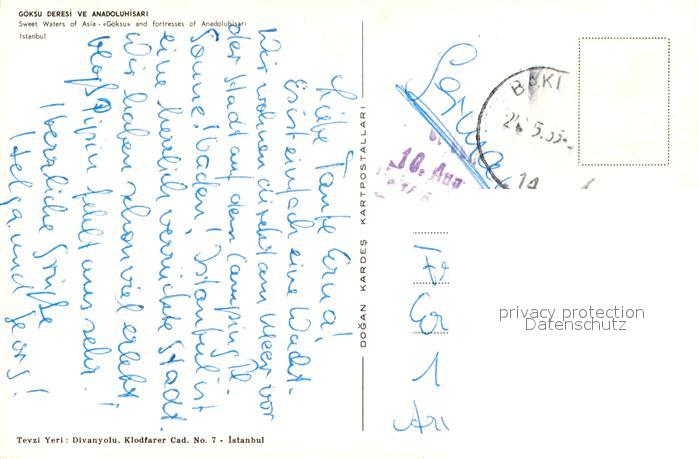 GÖKSU DERESİ VE ANADOLUHİSARI
Sweet Waters of Asia - «Göksu» and fortresses of Anadoluhisarı
Istanbul
Liebe Tante Erna!
Es ist einfach eine Wucht.
Wir wohnen direkt am Meer vor
der Stadt auf dem Campingpl.
Sonne! baden! Istanbul ist
eine herrlich verrückte Stadt.
Wir haben schon viel erlebt!
bloß Pipin fehlt uns sehr!
Herzliche Grüße
Helga und Georg!
DOĞAN KARDEŞ KARTPOSTALLARI
10. Aug
privacy protection
Datenschutz
1
Tevzi Yeri: Divanyolu, Klodfarer Cad. No. 7 - İstanbul